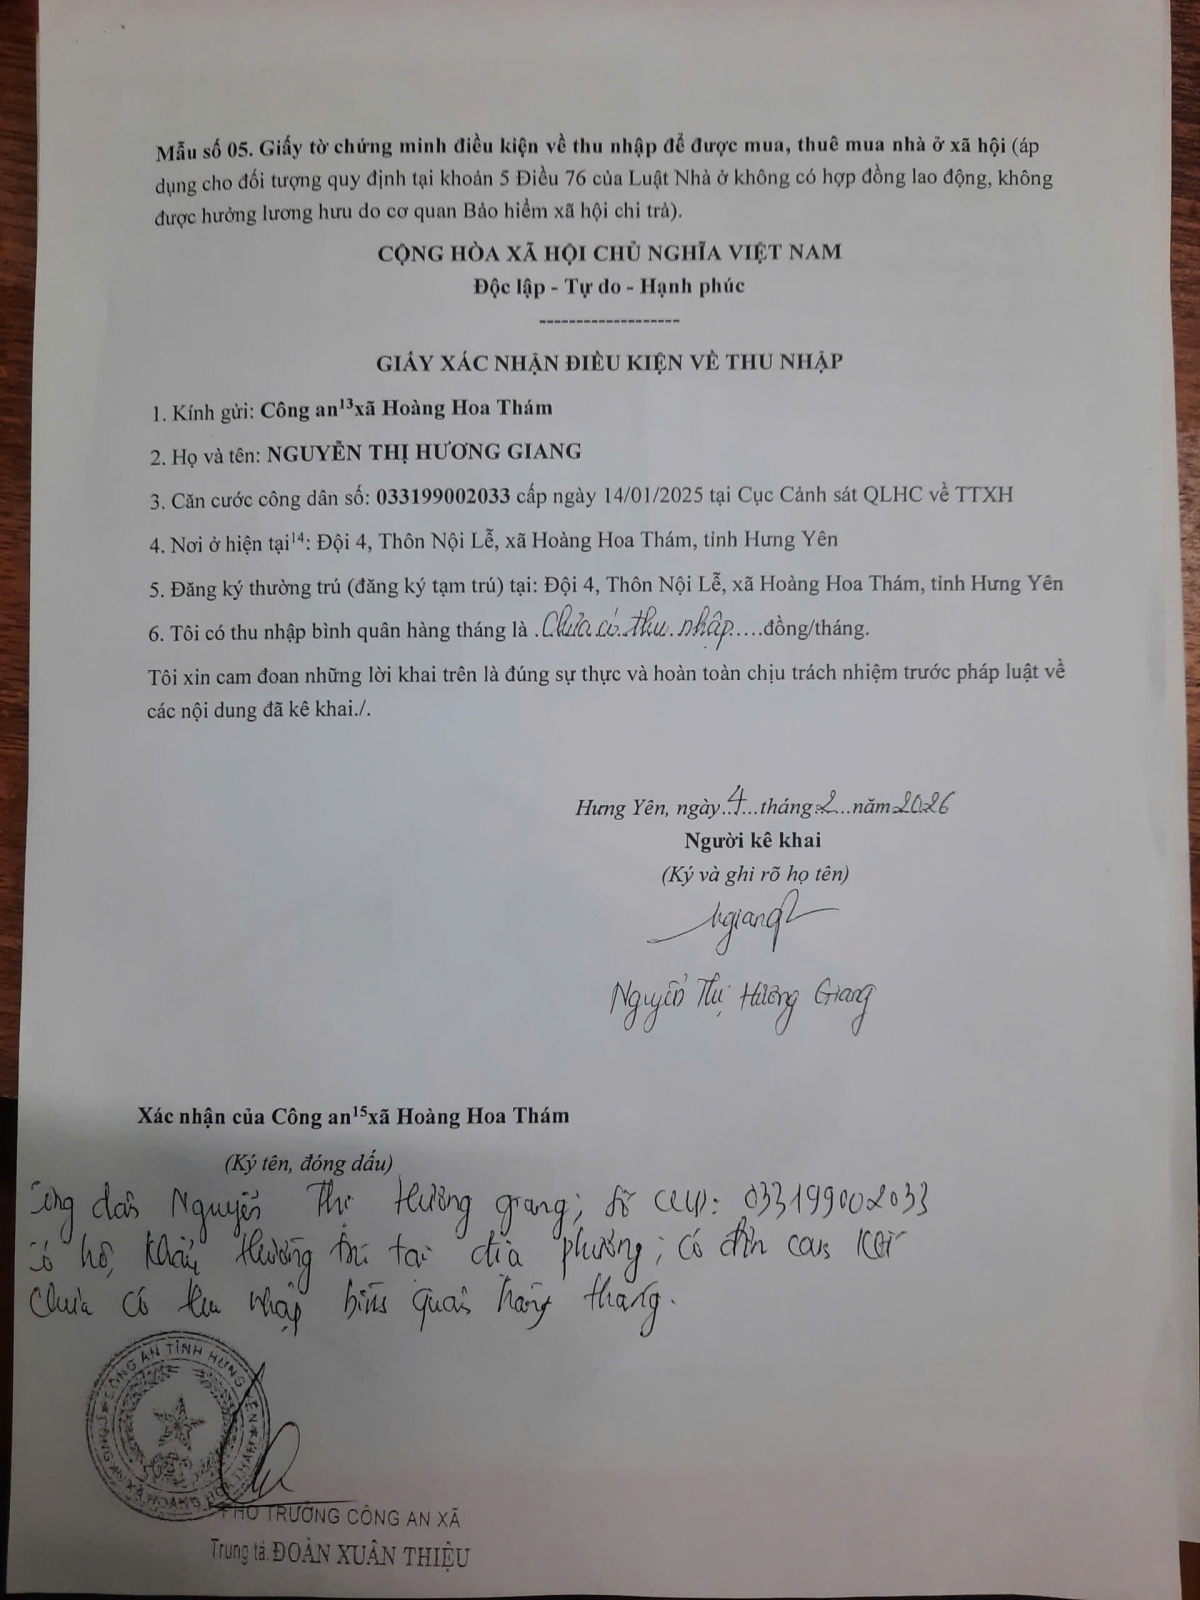 Mẫu số 05. Giấy tờ chứng minh điều kiện về thu nhập để được mua, thuê mua nhà ở xã hội (áp
dụng cho đối tượng quy định tại khoản 5 Điều 76 của Luật Nhà ở không có hợp đồng lao động, không
được hưởng lương hưu do cơ quan Bảo hiểm xã hội chi trả).
CỘNG HÒA XÃ HỘI CHỦ NGHĨA VIỆT NAM
Độc lập - Tự do - Hạnh phúc
-------------------
GIẤY XÁC NHẬN ĐIỀU KIỆN VỀ THU NHẬP
1. Kính gửi: Công an¹³xã Hoàng Hoa Thám
2. Họ và tên: NGUYỄN THỊ HƯƠNG GIANG
3. Căn cước công dân số: 033199002033 cấp ngày 14/01/2025 tại Cục Cảnh sát QLHC về TTXH
4. Nơi ở hiện tại¹⁴: Đội 4, Thôn Nội Lễ, xã Hoàng Hoa Thám, tỉnh Hưng Yên
5. Đăng ký thường trú (đăng ký tạm trú) tại: Đội 4, Thôn Nội Lễ, xã Hoàng Hoa Thám, tỉnh Hưng Yên
6. Tôi có thu nhập bình quân hàng tháng là .Chưa có thu nhập.....đồng/tháng.
Tôi xin cam đoan những lời khai trên là đúng sự thực và hoàn toàn chịu trách nhiệm trước pháp luật về
các nội dung đã kê khai./.
Hưng Yên, ngày..4...tháng..2...năm 2026
Người kê khai
(Ký và ghi rõ họ tên)
Giang
Nguyễn Thị Hương Giang
Xác nhận của Công an¹⁵xã Hoàng Hoa Thám
(Ký tên, đóng dấu)
Công dân Nguyễn Thị Hương giang; số CCCD: 033199002033
Có hộ khẩu thường trú tại địa phương; có đơn cam kết
Chưa có thu nhập bình quân hàng tháng.
CÔNG AN TỈNH HƯNG YÊN
XÃ HOÀNG HOA THÁM
PHÓ TRƯỞNG CÔNG AN XÃ
Trung tá. ĐOÀN XUÂN THIỆU